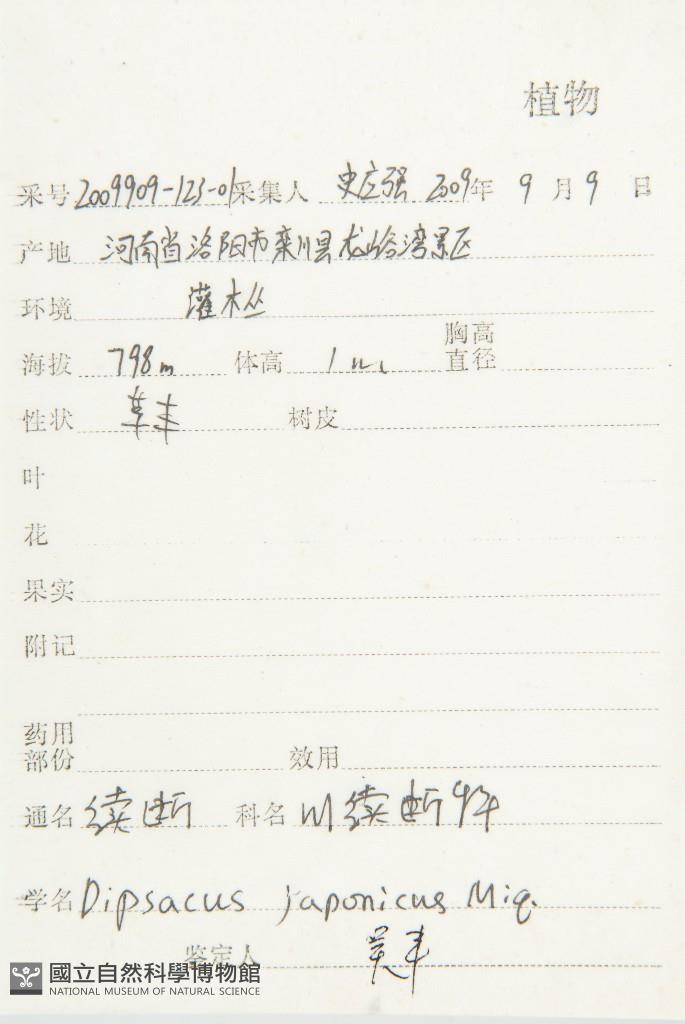 植物
采号 2009909-123-01 采集人 史志强 2009年 9月 9日
产地 河南省洛阳市栾川县龙峪湾景区
环境 灌木丛
海拔 798m 体高 1m 胸高直径
性状 草本
树皮
叶
花
果实
附记
药用部份 效用
通名 续断 科名 川续断科
学名 Dipsacus japonicus Miq.
鉴定人
國立自然科學博物館
NATIONAL MUSEUM OF NATURAL SCIENCE